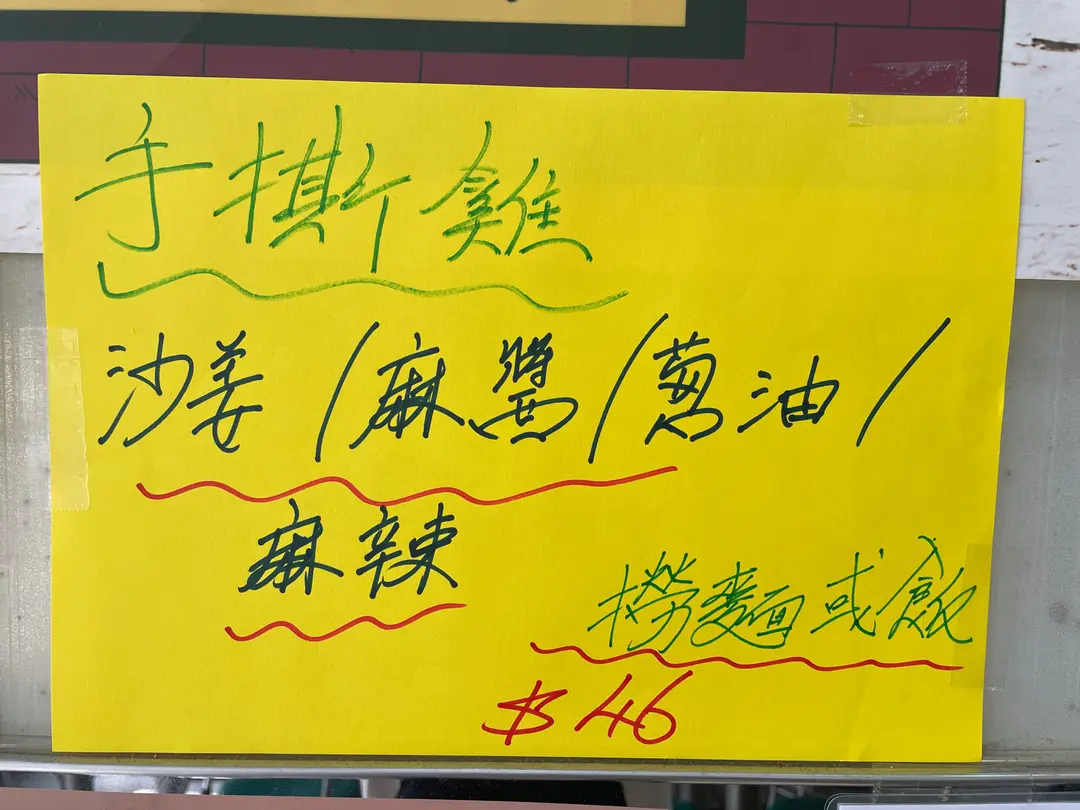 手撕雞
沙姜/麻醬/葱油/
麻辣
撈麵或飯
$46